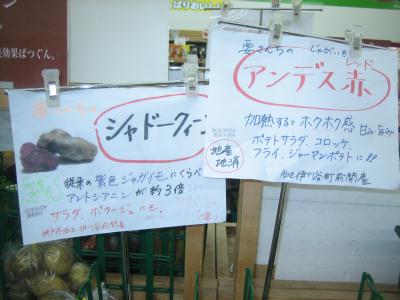 要さんちの じゃがいも
レッド
アンデス赤
加熱すると ホクホク感
甘み・旨み
ポテトサラダ、コロッケ、
フライ、ジャーマンポテトに!!
地産
地消
西区伊川谷町前開産
シャドークイーン
従来の紫色ジャガイモにくらべ
アントシアニンが約3倍
サラダ、ポタージュにも。
神戸市西区伊川谷前開産
効果ばつぐん。